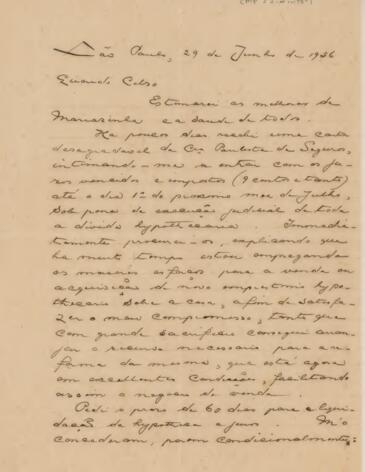 São Paulo, 29 de Junho de 1936
Querido Celso.
Estimarei as melhoras de
Mariazinha e a saude de todos.
Ha poucos dias recebi uma carta
desagradavel da Cia Paulista de Seguros,
intimando-me a entrar com os ju-
ros vencidos e impostos (9 contos e tanto)
até o dia 1º do proximo mez de Julho,
sob pena de execução judicial de toda
a divida hypothecaria. Immedia-
tamente procurei-os, explicando que
ha muito tempo estou empregando
os maiores esforços para a venda ou
acquisição de novo emprestimo hypo-
thecario sobre a casa, a fim de satisfa-
zer o meu compromisso, tanto que
com grande sacrificio consegui arran-
jar o recurso necessario para a re-
forma da mesma, que está agora
em excellentes condições, facilitando
assim o negocio de venda.
Pedi o prazo de 60 dias para a liqui-
dação da hypotheca e juros. M'o
concederam, porém condicionalmente: